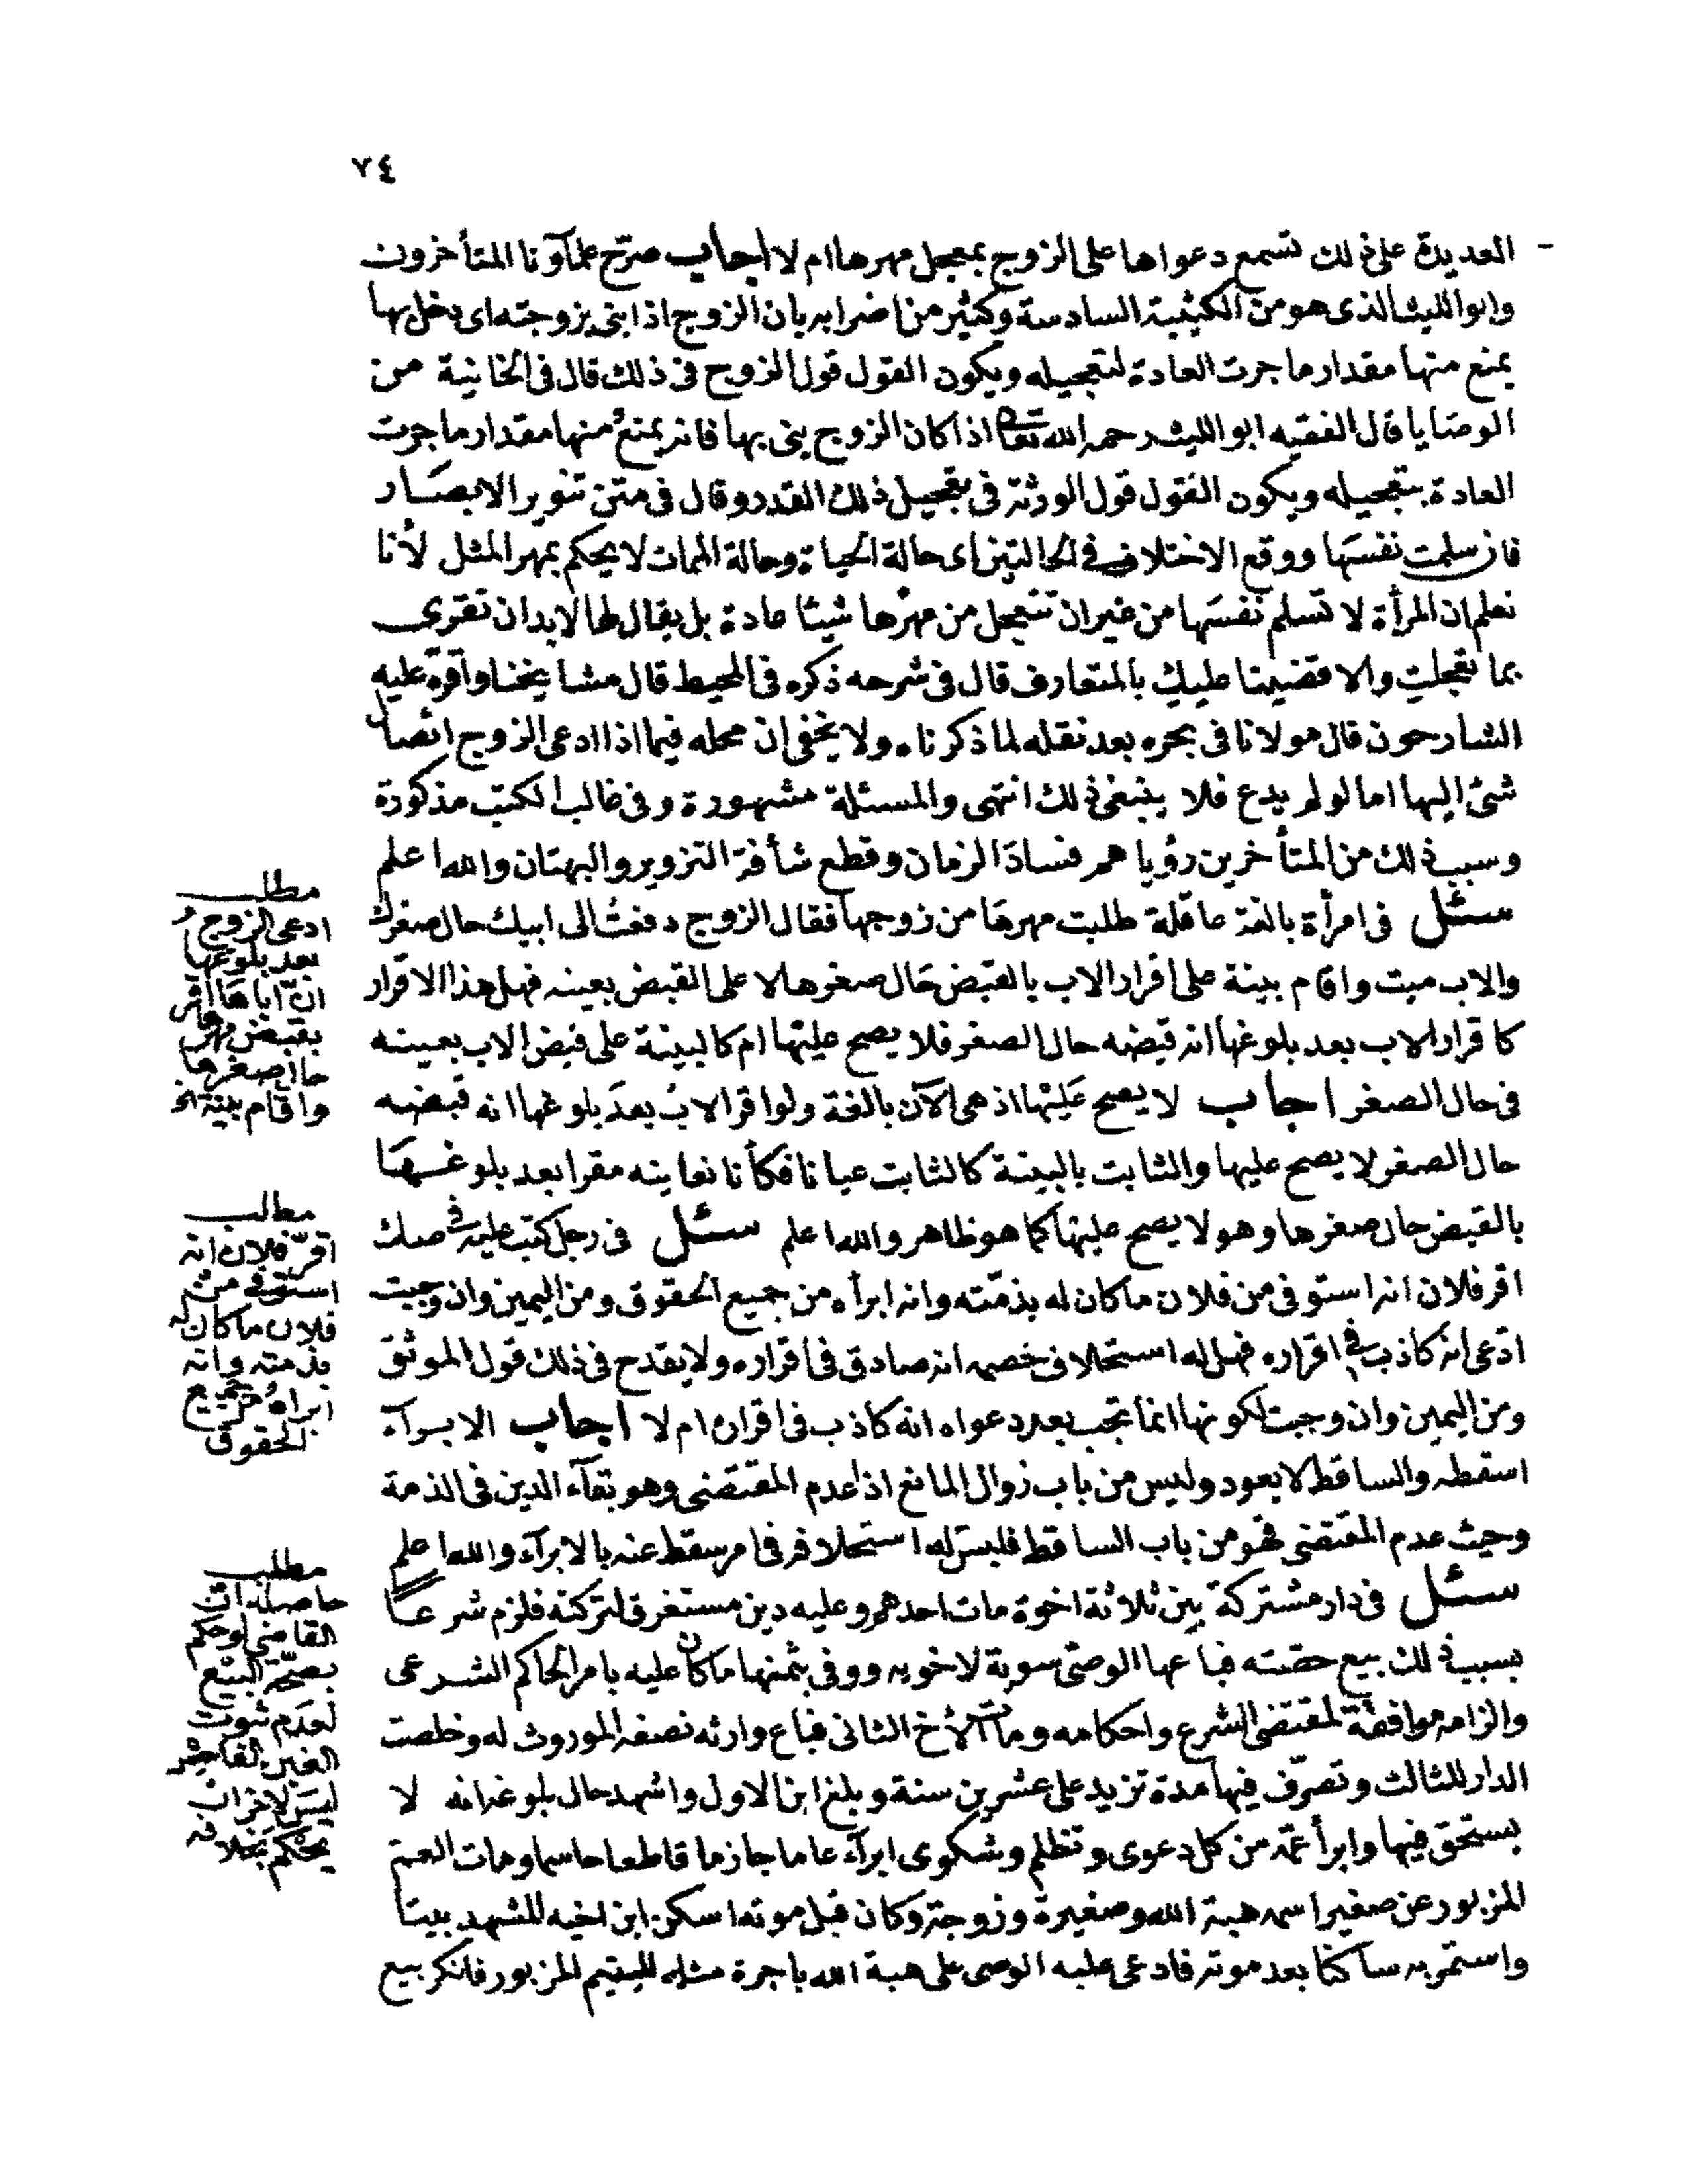 ٧٤
العديدة على ذلك تسمع دعواها على الزوج بمعجل مهرها ام لا اجاب صرّح علمآونا المتأخرون
وابو الليث الذى هو من الكثيبة السادسة وكثير من اضرابه بان الزوج اذا بنى بزوجته اى دخل بها
يمنع منها مقدار ما جرت العادة لتعجيله ويكون القول قول الزوج فى ذلك قال فى الخانية من
الوصايا قال الفقيه ابو الليث رحمه الله تعا اذا كان الزوج بنى بها فانه يمنع منها مقدار ما جرت
العادة بتعجيله ويكون القول قول الورثة فى تعجيل ذلك القدر وقال فى متن تنوير الابصار
فان سلمت نفسها ووقع الاختلاف فى الحالتين اى حالة الحياة وحالة الممات لا يحكم بمهر المثل لأنا
نعلم ان المرأة لا تسلم نفسها من غير ان تتعجل من مهرها شيئا عادة بل يقال لها لا بد ان تقرى
بما تعجلت والا قضينا عليك بالمتعارف قال فى شرحه ذكره فى المحيط قال مشايخنا واقره عليه
الشارحون قال مولانا فى بحره بعد نقله لما ذكرناه ولا يخفى ان محله فيما اذا ادعى الزوج ائصال
شئ اليها اما لو لم يدع فلا ينبغى ذلك انتهى والمسئلة مشهورة وفى غالب الكتب مذكورة
وسبب ذلك من المتأخرين رؤياهم فساد الزمان وقطع شأفة التزوير والبهتان والله اعلم
سئل فى امرأة بالغة عاقلة طلبت مهرها من زوجها فقال الزوج دفعت الى ابيك حال صغرك
والاب ميت واقام بينة على اقرار الاب بالقبض حال صغرها لا على القبض بعينه فهل هذا الاقرار
كاقرار الاب بعد بلوغها انه قبضه حال الصغر فلا يصح عليها ام كالبينة على قبض الاب بعينه
فى حال الصغر اجاب لا يصح عليها اذ هى الآن بالغة ولو اقر الاب بعد بلوغها انه قبضه
حال الصغر لا يصح عليها والثابت بالبينة كالثابت عيانا فكأنا نعاينه مقرا بعد بلوغها
بالقبض حال صغرها وهو لا يصح عليها كما هو ظاهر والله اعلم سئل فى رجل كتب عليه فى صك
اقر فلان انه استوفى من فلان ما كان له بذمّته وانه ابرأه من جميع الحقوق ومن اليمين وان وجبت
ادّعى انه كاذب فى اقراره فهل له استحلاف خصمه انه صادق فى اقراره ولا يقدح فى ذلك قول الموثق
ومن اليمين وان وجبت لكونها انما تجب بعد دعواه انه كاذب فى اقراره ام لا اجاب الابرآء
اسقطه والساقط لا يعود وليس من باب زوال المانع اذا عدم المقتضى وهو بقآء الدين فى الذمة
وحيث عدم المقتضى فهو من باب الساقط فليس له استحلافه فى امر سقط عنه بالابرآء والله اعلم
سئل فى دار مشتركة بين ثلاثة اخوة مات احدهم وعليه دين مستغرق لتركته فلزم شرعا
بسبب ذلك بيع حصّته فباعها الوصى سوية لاخويه ووفى بثمنها ما كان عليه بامر الحاكم الشرعى
والزامه موافقة لمقتضى الشرع واحكامه ومات الأخ الثانى فباع وارثه نصفه الموروث له وخلصت
الدار للثالث وتصرّف فيها مدة تزيد على عشرين سنة وبلغ ابن الاول واشهد حال بلوغه انه لا
يستحق فيها وابرأ عمّه من كل دعوى وتظلم وشكوى ابرآء عاما جازما قاطعا حاسما ومات العم
المزبور عن صغير اسمه هبة الله وصغيرة وزوجة وكان قبل موته اسكن ابن اخيه المشهد بيتا
واستمر به ساكنا بعد موته فادعى عليه الوصى على هبة الله باجرة مثله لليتيم المزبور فانكر بيع
مطلب
ادعى الزوج
بعد بلوغها
انّ اباها اقر
بقبض مهرها
حال صغرها
واقام بينة الخ
مطالب
اقرّ فلان انه
استوفى من
فلان ما كان له
بذمته وانه
ابرأه من جميع
الحقوق
مطلب
حاصله ان
القاضى لو حكم
بصحّة البيع
لعدم ثبوت
الغبن الفاحش
ليس لاخر ان
يحكم بخلافه